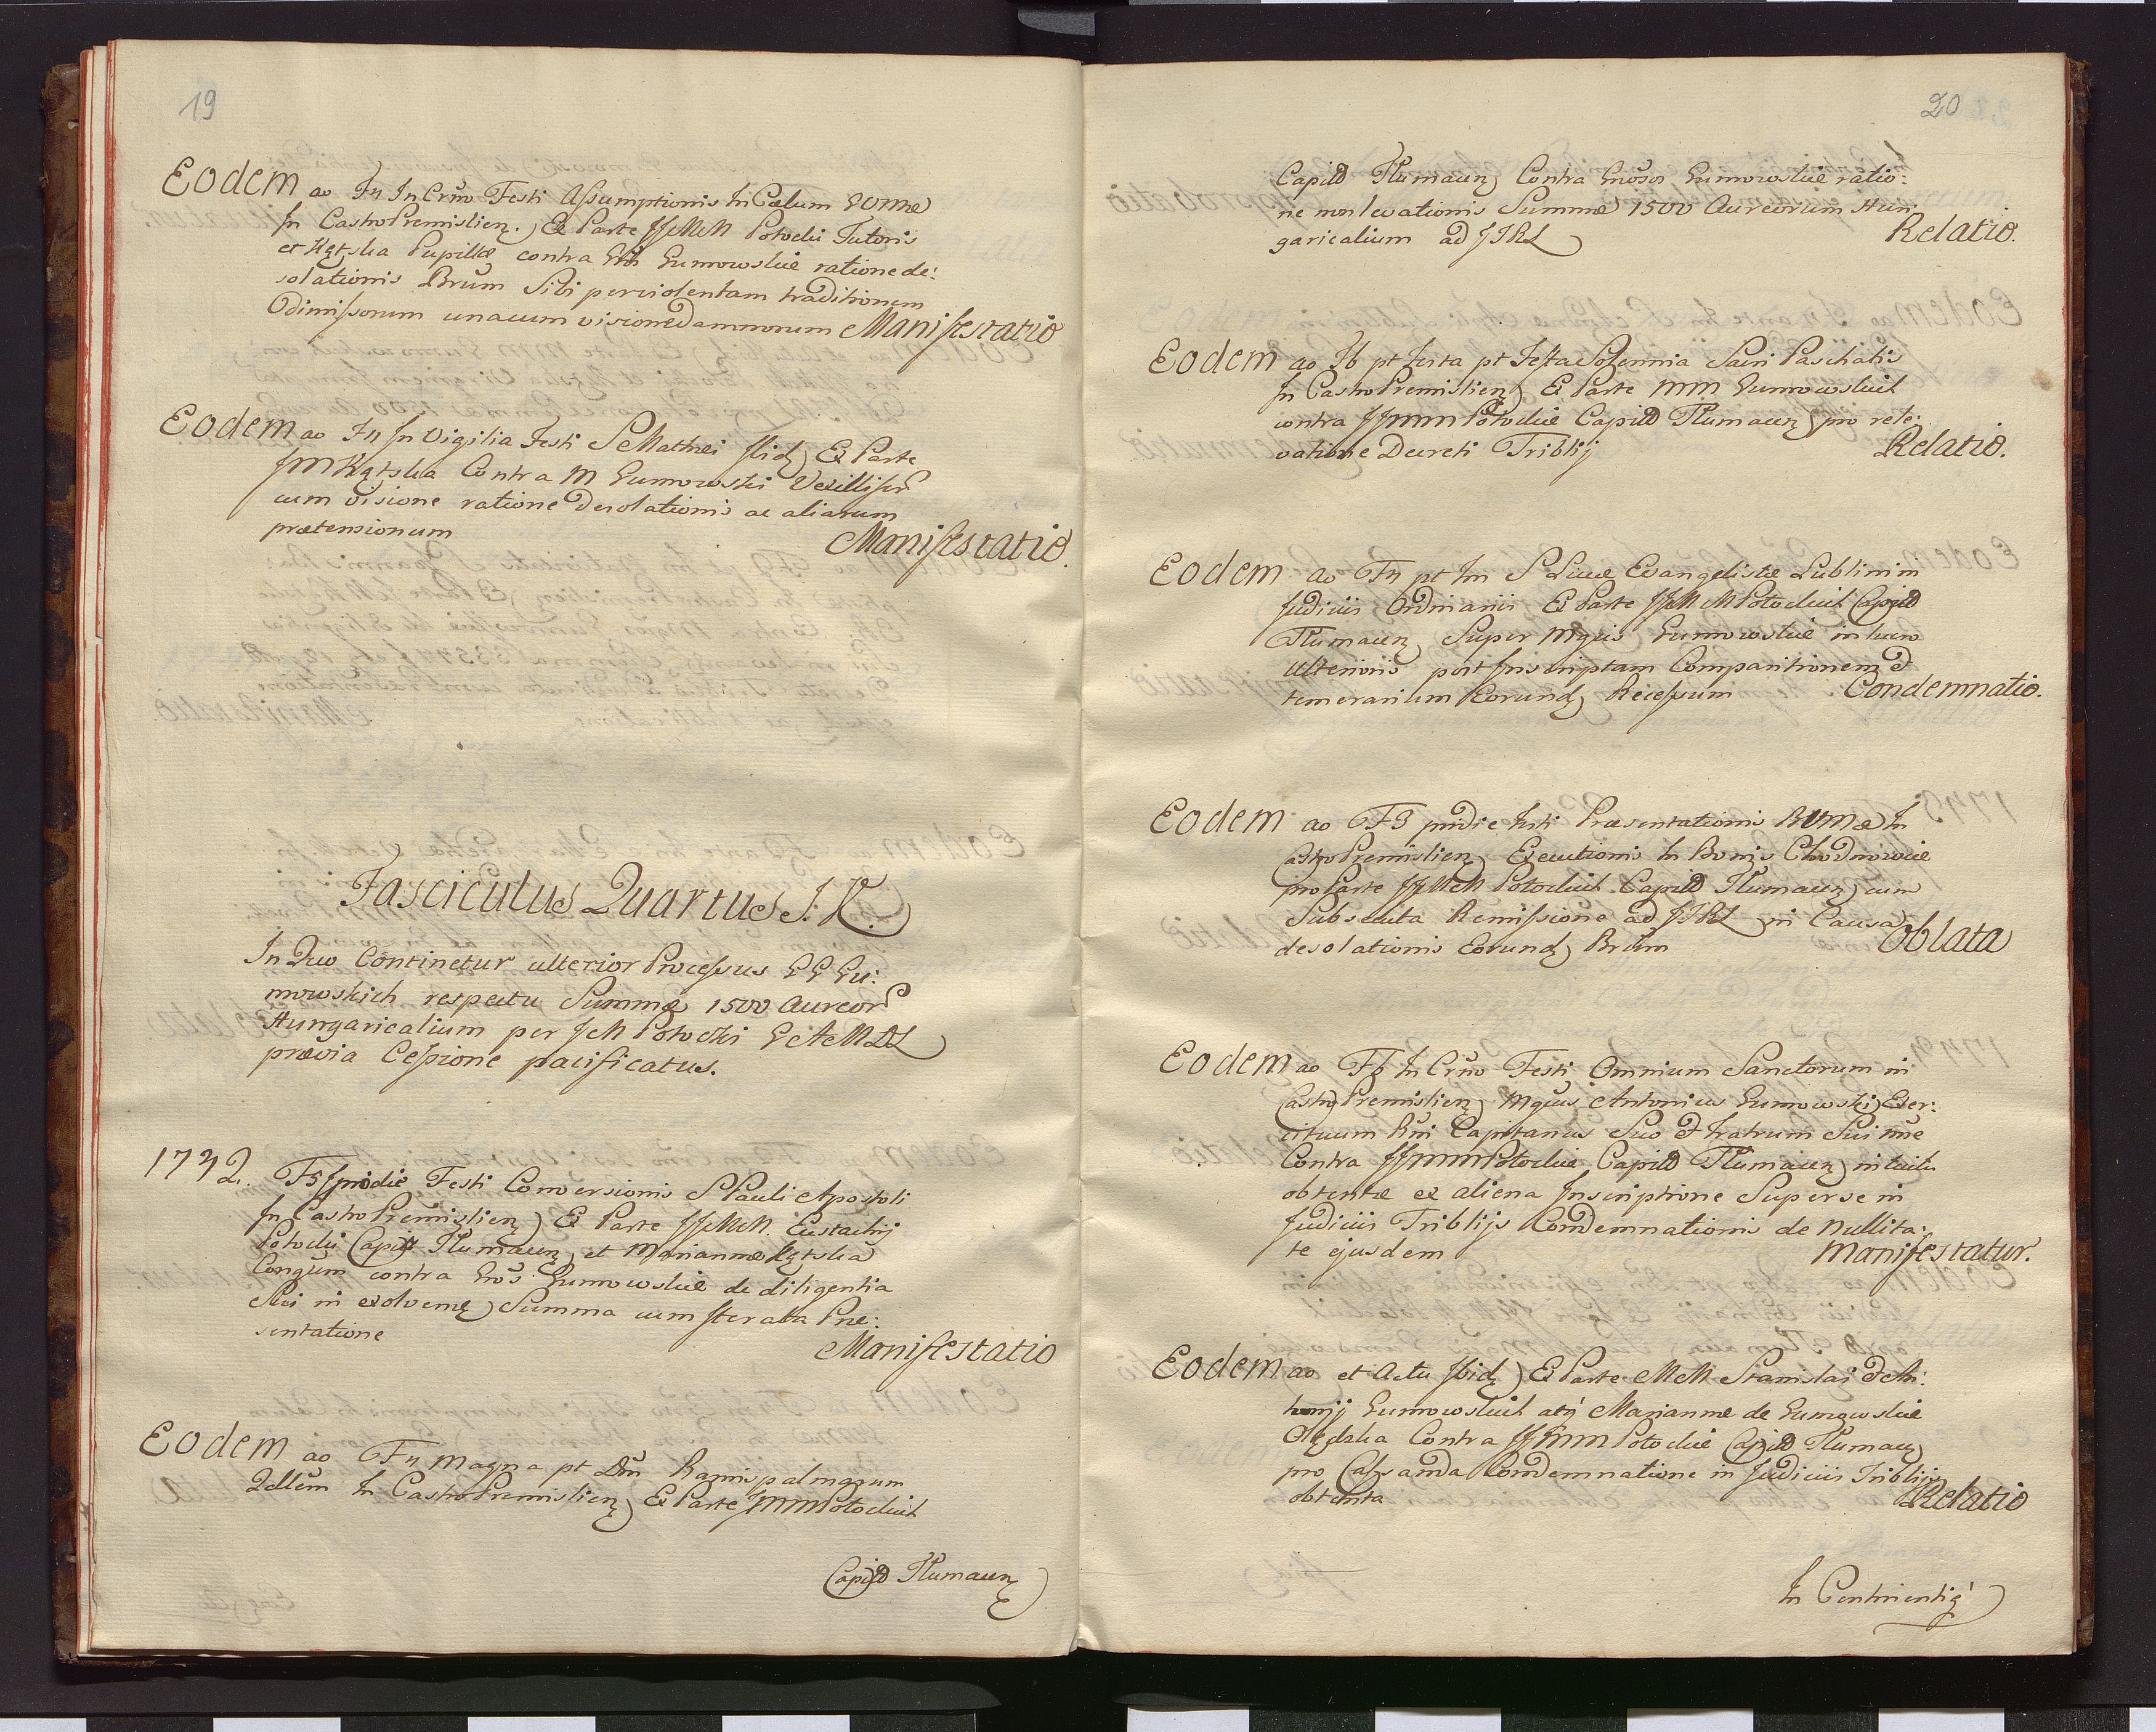 19
Eodem ao F4 In Crño Festi Assumptionis In Cœlum
In Castro Premislien. Ex Parte JJMM Potocki Tutoris
et Kętska Pupillæ contra Gumowskie ratione de:
solationis Brum Sibi per violentam traditionem
Odimissorum unacum visione damnorum Manifestatio
Eodem ao F4 In Vigilia Festi S Mathei Ibid Ex Parte
JM Kętska Contra M Gumowski Vexillifer
cum visione ratione desolationis ac aliarum
prætensionum Manifestatio.
Fasciculus Quartus J. K.
In Quo Continetur ulterior Processus GG Gu:
mowskich respectu Summæ 1500 Aureor
Hungaricalium per JM Potocki
prævia Cessione pacificatus.
1742. F3 pridie Festi Conversionis S Pauli Apostoli
In Castro Premislien Ex Parte JJMM. Eustachij
Potocki Capit Tlumacen et Mariannæ Kętska
Congum contra Gumowskie de diligentia
Sui in exolven Summa cum Iterata Præ:
sentatione Manifestatio
Eodem ao F4 Magna pt Dñm Ramis palmarum
In Castro Premislien Ex Parte JMM Potockich
Capit Tlumacen
20
Capit Tlumacen Contra Gumowskie ratio:
ne non levationis Summæ 1500 Aureorum Hun:
garicalium ad JTRL Relatio.
Eodem ao F6 pt Festa pt Festa Solennia Sacri Paschatis
In Castro Premislien Ex Parte MM Gumowskich
contra JJMM Potockie Capit Tlumacen pro rele:
vatione Decreti Triblij Relatio.
Eodem ao F4 pt Fm S Lucæ Evangelistæ Lublini in
Judiciis Ordinariis Ex Parte JJMM Potockich Capit
Tlumacen Super Mgcis Gumowskie in lucro
Ulterioris post Inscriptam Comparitionem et
temerarium Eorund Recessum Condemnatio.
Eodem ao F3 pridie Festi Præsentationis In
Castro Premislien Executionis In Bonis Chodnowie
pro Parte JJMM Potockich Capit Tlumacen cum
Subsecuta Remissione ad JTRL in Causa
desolationis Eorund Brum Oblata
Eodem ao F6 In Crño Festi Omnium Sanctorum in
Castro Premislien Mgcus Antonius Gumowski Exer:
cituum Rni Capitaneus Suo et Fratrum Sui nne
Contra JJMM Potockie Capit Tlumacen intuitu
obtentæ ex aliena Inscriptione Super se in
Judiciis Triblijs Condemnationis de Nullita:
te ejusdem Manifestatur.
Eodem ao et Actu Ibid Ex Parte MM Stanislai et An:
tonij Gumowskich atq Mariannæ de Gumowskie
Olędzka Contra JJMM Potockie Capit Tlumacen
pro Cassanda Condemnatione in Judiciis Triblijs
obtenta Relatio
In Continenti